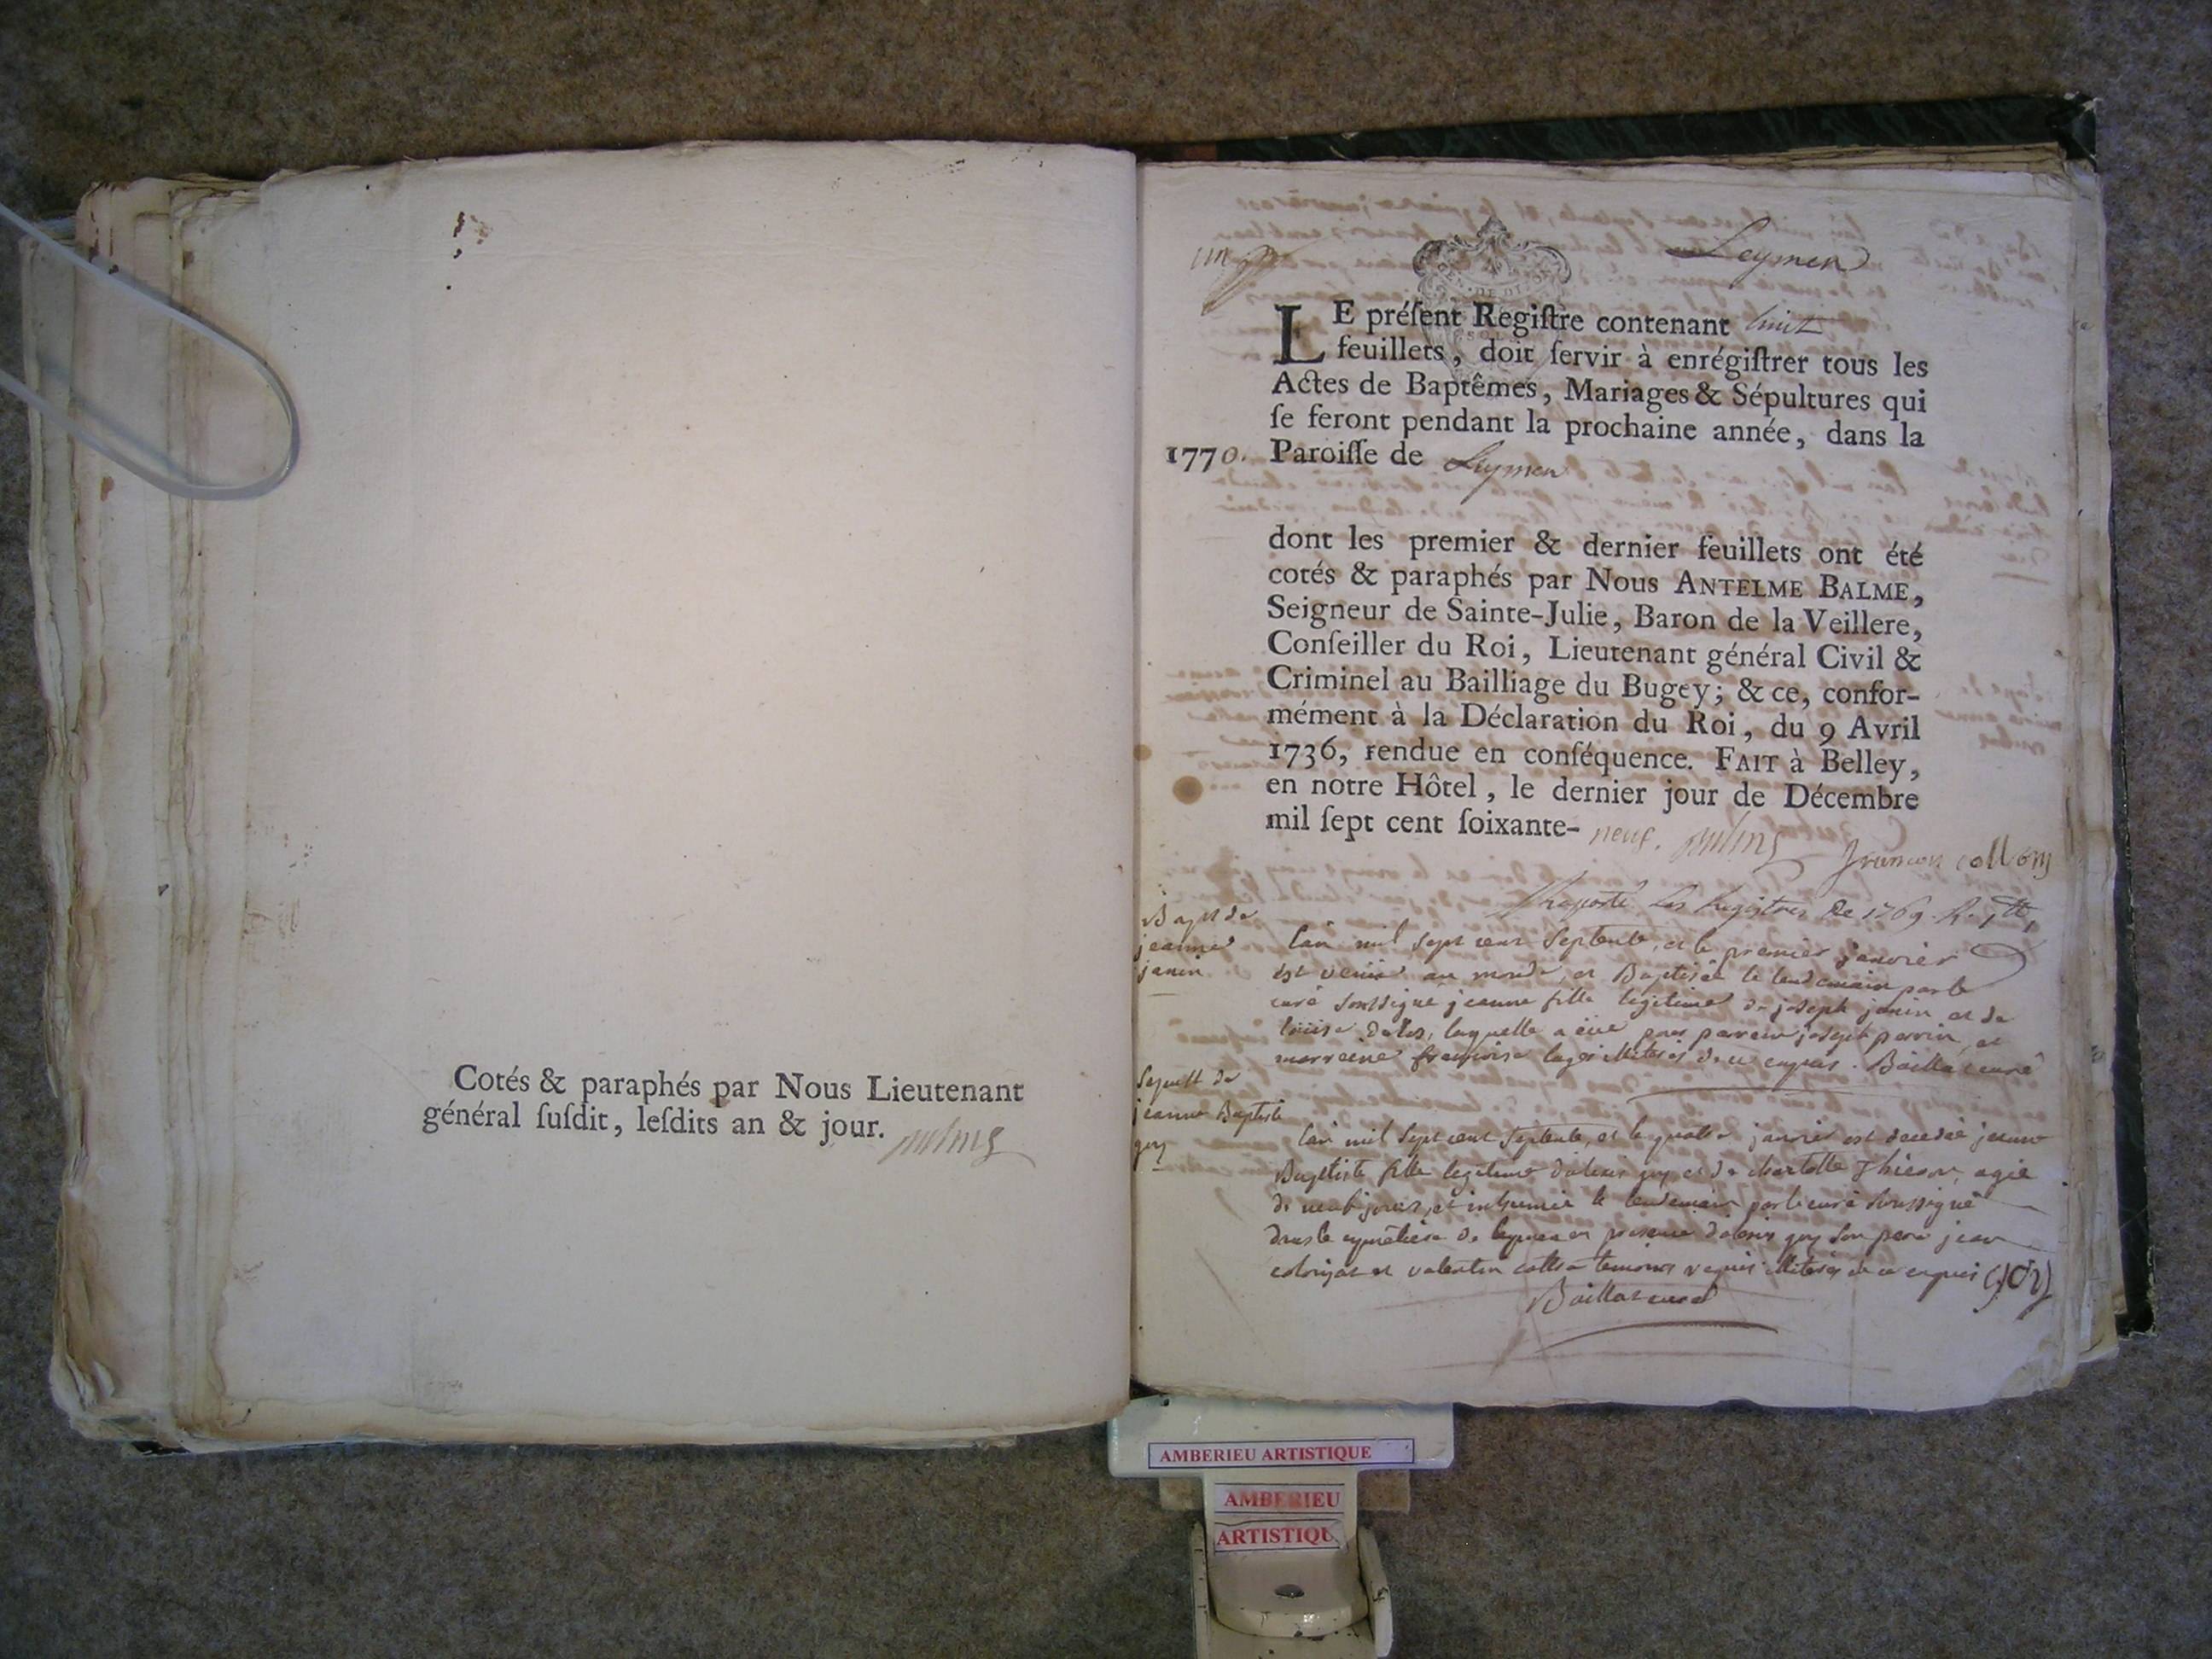 Cotés & paraphés par Nous Lieutenant
général ſuſdit, leſdits an & jour.
un
Leymen
LE préſent Regiſtre contenant huit
feuillets, doit ſervir à enrégiſtrer tous les
Actes de Baptêmes, Mariages & Sépultures qui
ſe feront pendant la prochaine année, dans la
1770. Paroiſſe de Leymen
dont les premier & dernier feuillets ont été
cotés & paraphés par Nous ANTELME BALME,
Seigneur de Sainte-Julie, Baron de la Veillere,
Conſeiller du Roi, Lieutenant général Civil &
Criminel au Bailliage du Bugey; & ce, confor-
mément à la Déclaration du Roi, du 9 Avril
1736, rendue en conſéquence. FAIT à Belley,
en notre Hôtel, le dernier jour de Décembre
mil ſept cent ſoixante- neuf.
Raporté les Registres de 1769.
Bapt de
jeanne
janin
l'an mil sept cent septente, et le premier janvier
est venue au monde, et Baptisée le lendemain par le
curé soussigné jeanne fille legitime de joseph janin et de
louise laquelle a eue pour parrein joseph perrin, et
marreine francoise illiterés de ce enquis. Baillat curé
sepult de
jeanne Baptiste
guy
l'an mil sept cent septente, et le quatre janvier est decedée jeanne
Baptiste fille legitime guy et de charlotte agée
de neuf jours, et inhumée le lendemain par le curé soussigné
dans le cymetiere de leymen en presence guy son pere jean
et valentin temoins requis illiterés de ce enquis
Baillat curé
AMBERIEU ARTISTIQUE
AMBERIEU
ARTISTIQU